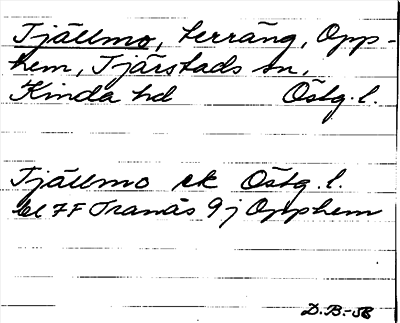 Tjällmo, terräng, Opp-
hem, Tjärstads sn,
Kinda hd Östg. l.
Tjällmo ek Östg. l.
bl 7F Tranås 9j Opphem
D.B.-58